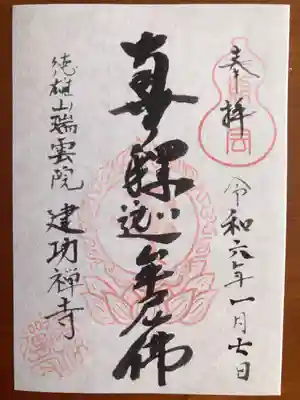 奉拝
令和六年一月七日
南無釋迦牟尼佛
徳雄山瑞雲院
建功禅寺